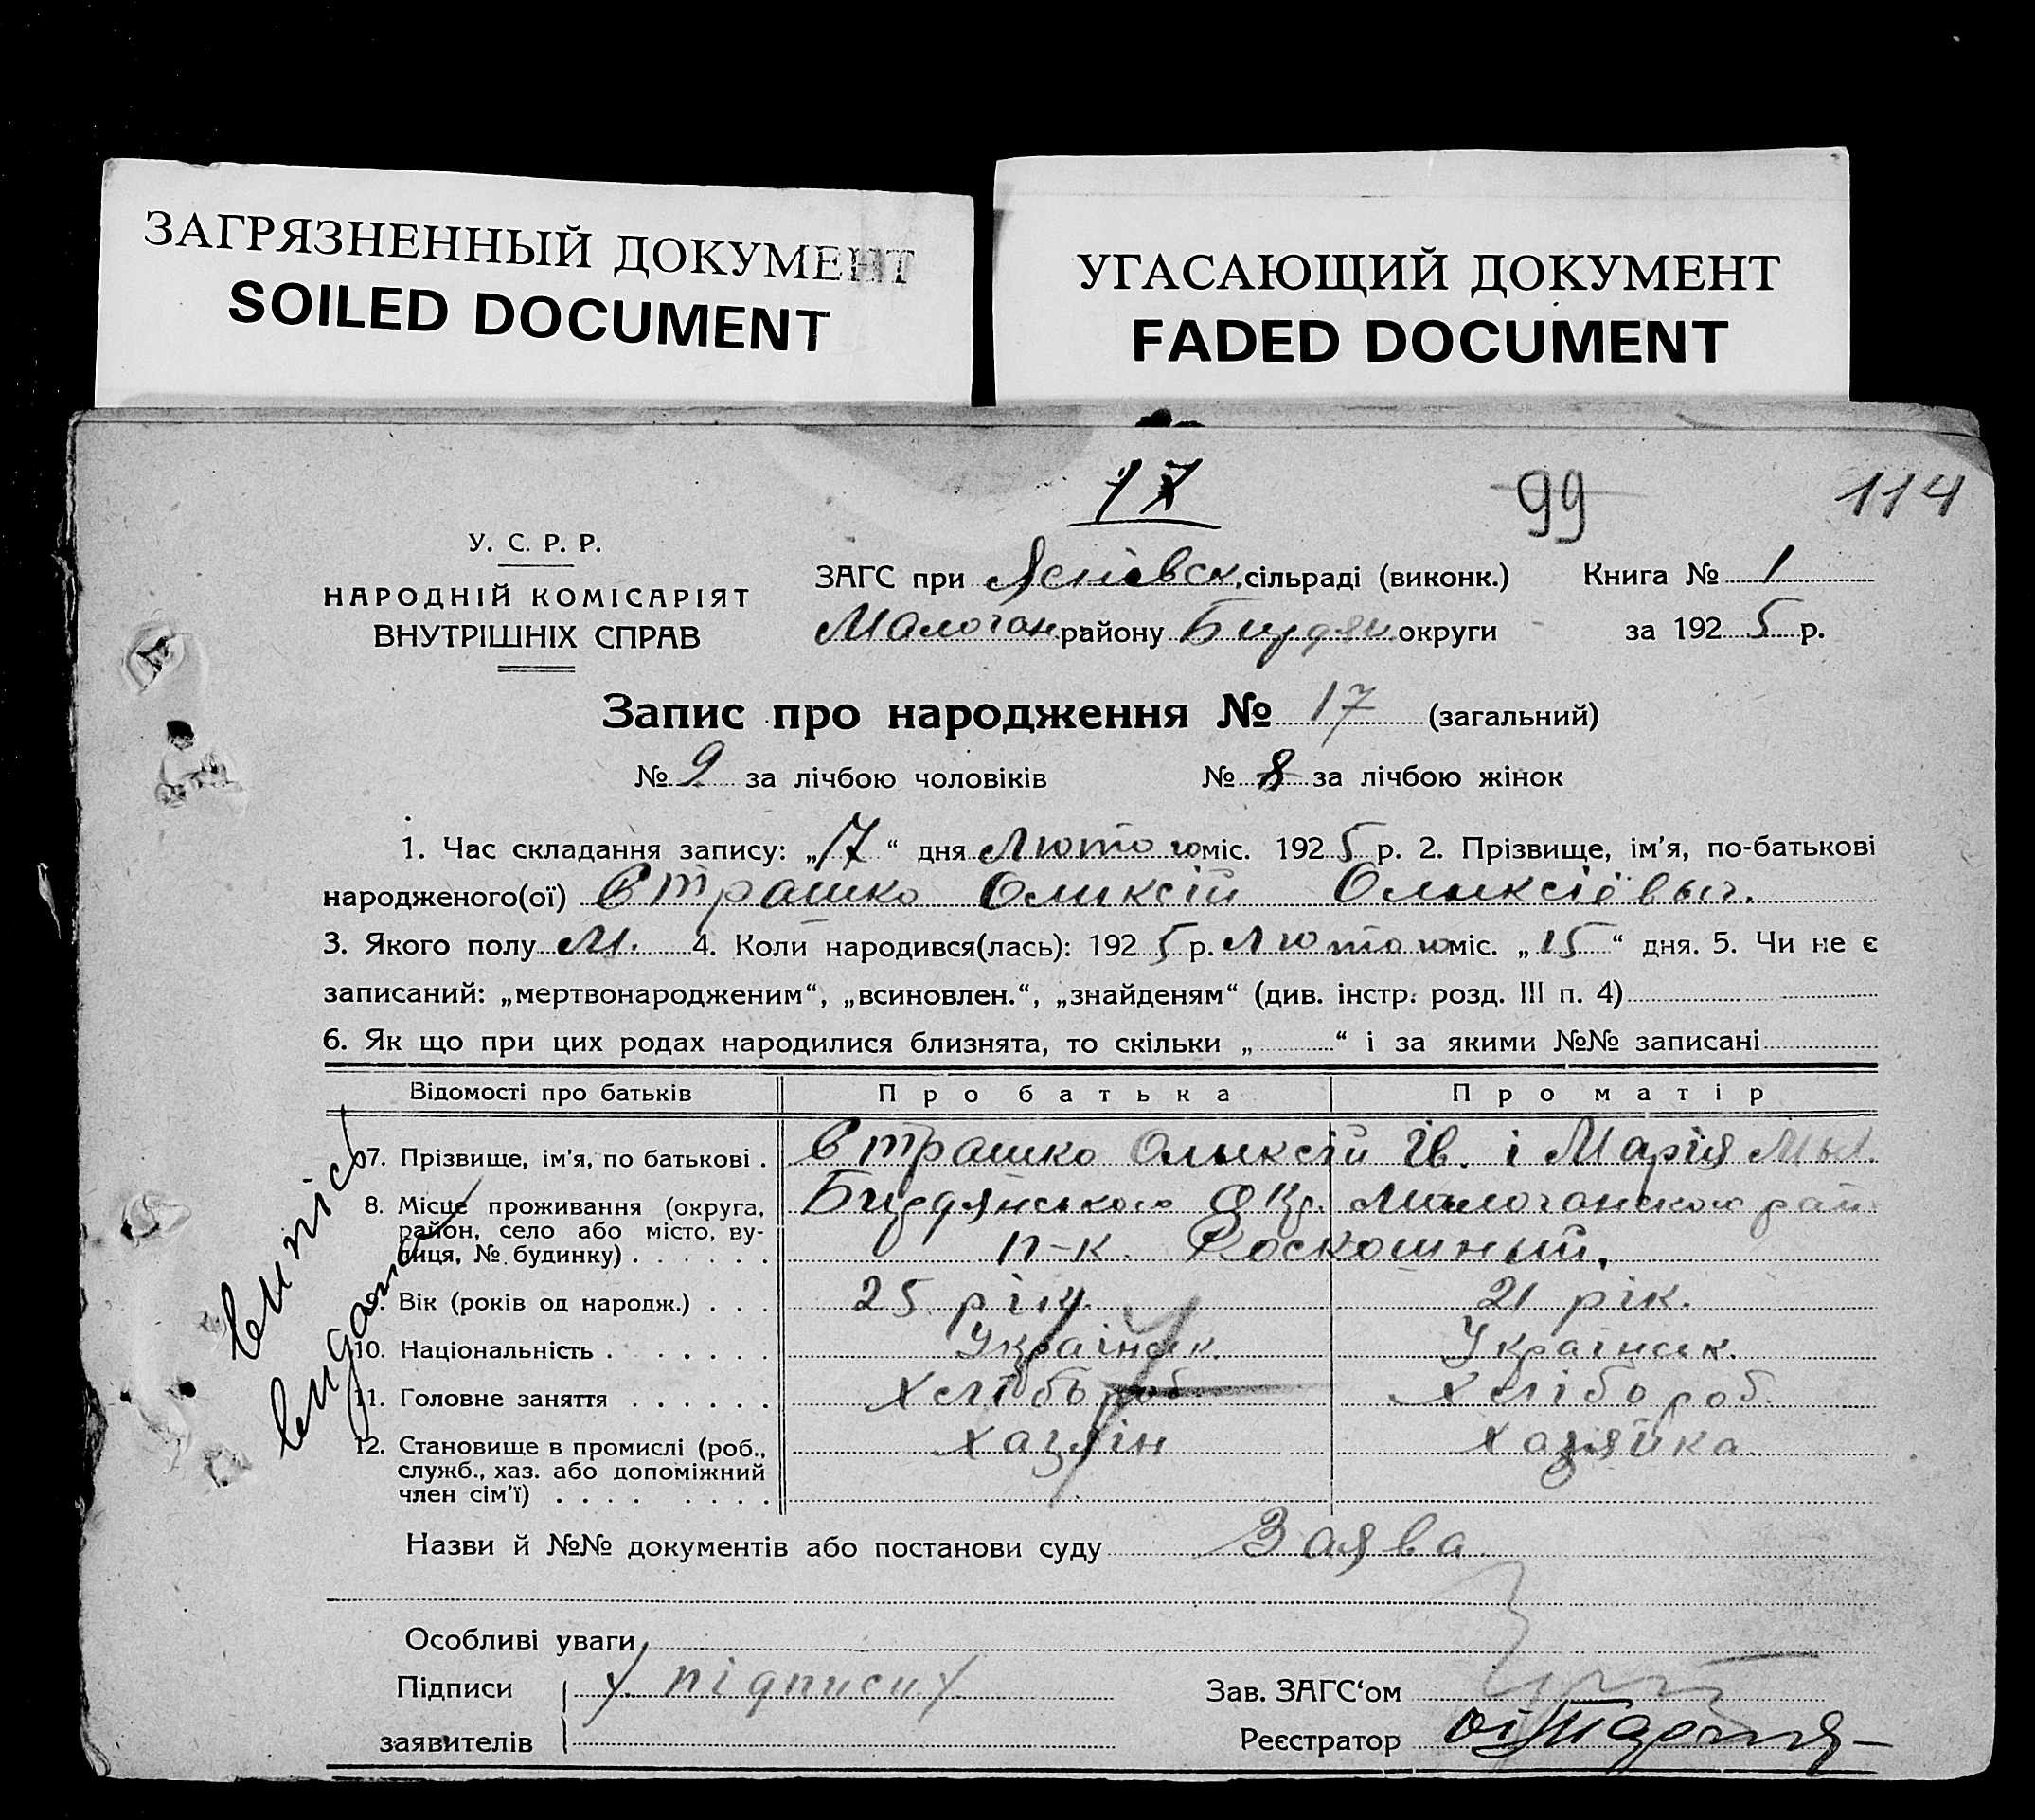 ЗАГРЯЗНЕННЫЙ ДОКУМЕНТ
SOILED DOCUMENT
УГАСАЮЩИЙ ДОКУМЕНТ
FADED DOCUMENT
17
99
114
У. С. Р. Р.
НАРОДНІЙ КОМІСАРІЯТ
ВНУТРІШНІХ СПРАВ
ЗАГС при сільраді (виконк.) Книга № 1
Малоган району Бирдян округи за 1925 р.
Запис про народження № 17 (загальний)
№ 9 за лічбою чоловіків № 8 за лічбою жінок
1. Час складання запису: „17“ дня Лютого міс. 1925 р. 2. Прізвище, ім’я, по-батькові
народженого(ої) Втрашко Оликсій Олыксіёвыч.
3. Якого полу М. 4. Коли народився(лась): 1925 р. Лютого міс. „15“ дня. 5. Чи не є
записаний: „мертвонародженим“, „всиновлен.“, „знайденям“ (див. інстр. розд. III п. 4)
6. Як що при цих родах народилися близнята, то скільки „ “ і за якими №№ записані
Відомості про батьків Про батька Про матір
7. Прізвище, ім’я, по батькові . Втрашко Олыксій Ів. і Марія Мых.
8. Місце проживання (округа, район, село або місто, вулиця, № будинку) . . . . . . Бирдянського Окр. Малоганского рай
п-к. Роскошный.
9. Вік (років од народж.) . . . 25 рік. 21 рік.
10. Національність . . . . . . . Українск. Українск.
11. Головне заняття . . . . . . Хлібороб. Хлібороб.
12. Становище в промислі (роб., служб., хаз. або допоміжний член сім’ї) . . . . . . . . Хазяін Хазяйка
випісь
видана
Назви й №№ документів або постанови суду Заява
Особливі уваги
Підписи підписи
заявителів
Зав. ЗАГС‘ом
Реєстратор